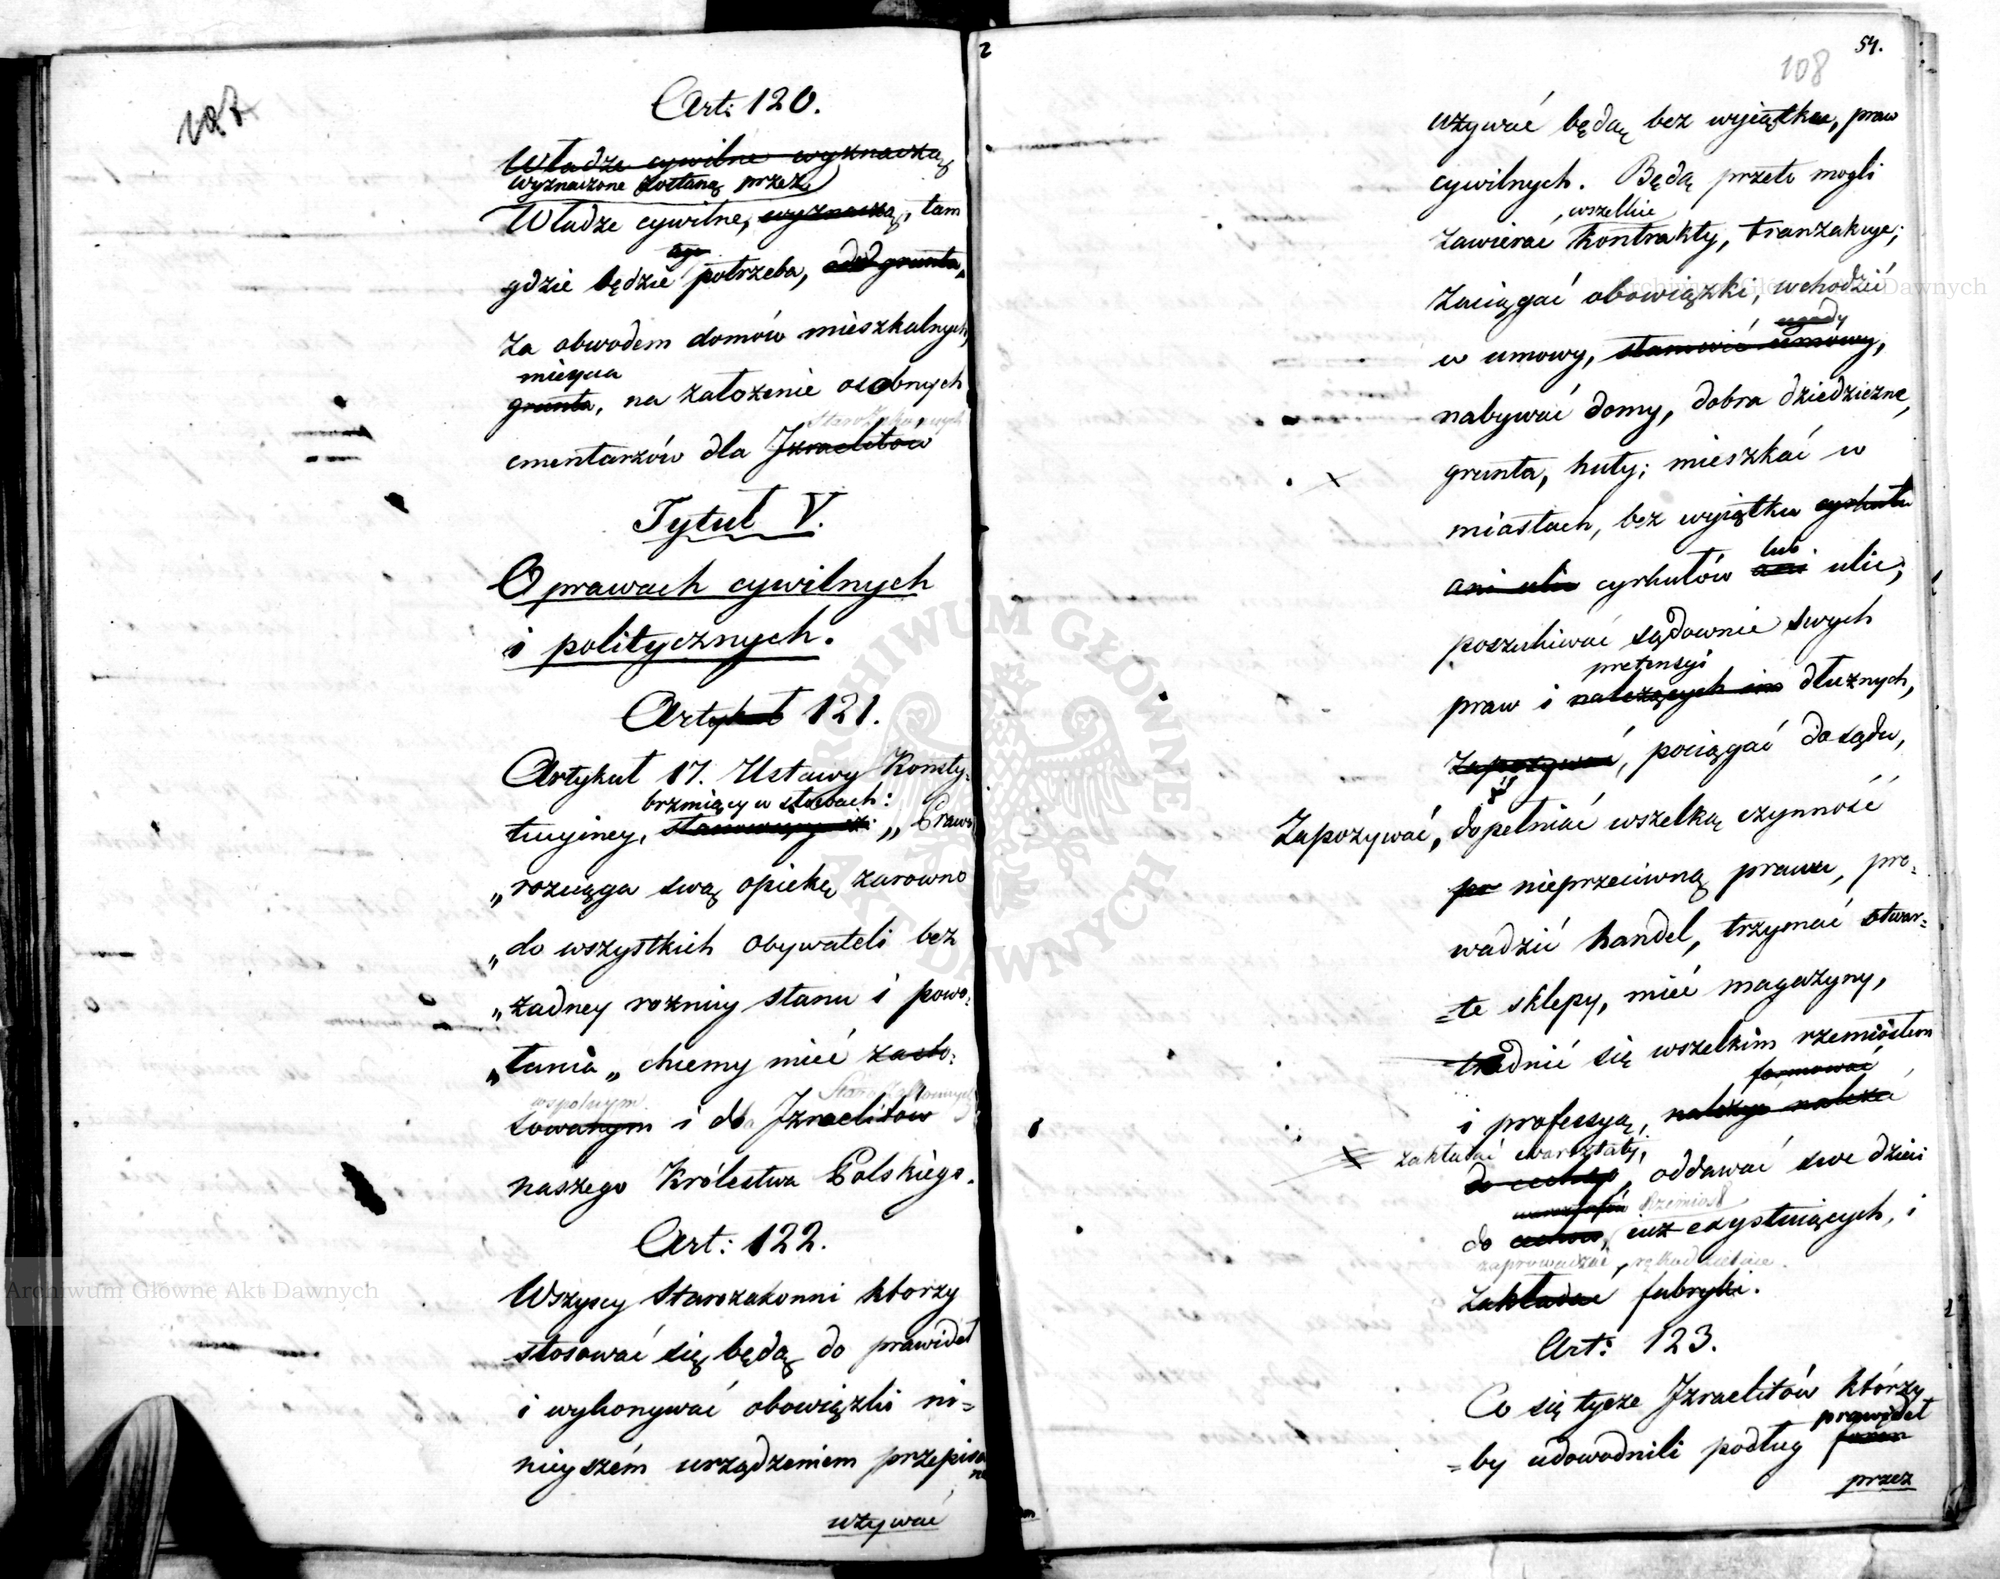 107
Art: 120.
Władze cywilne wyznaczą
wyznaczone zostaną przez
Władze cywilne, wyznaczą, tam
gdzie będzie tego potrzeba, grunta,
za obwodem domów mieszkalnych,
mieysca
grunta, na założenie osobnych
Starozakonnych
cmentarzów dla Izraelitow
Tytuł V.
O prawach cywilnych
i politycznych.
Artykuł 121.
Artykuł 17. Ustawy Konsty-
brzmiący w słowach:
tucyiney, „Prawo
„rozciąga swą opiekę zarowno
„do wszystkich obywateli bez
„żadney rożnicy stanu i powo-
„łania„ chcemy mieć zasto-
wspolnym Starozakonnych
sowanym i do Izraelitow
naszego Królestwa Polskiego.
Art: 122.
Wszyscy Starozakonni ktorzy
stosować się będą do prawideł
i wykonywać obowiązki ni=
nieyszém urządzeniem przepisane
używać
2
54.
108
używać będą bez wyiątku, praw
cywilnych. Będą przeto mogli
wszelkie
zawierać kontrakty, tranzakcye;
zaciągać obowiązki, wchodzić
ugody
w umowy, stanowić umowy,
nabywać domy, dobra dziedziczne,
grunta, huty; mieszkać w
miastach, bez wyiątku cyrkułu
lub
ani ulic cyrkułów ani ulic;
poszukiwać sądownie swych
pretensyi
praw i należących im dłużnych,
Zapozywać, pociągać do sądu,
Zapozywać, dopełniać wszelką czynność
nieprzeciwną prawu, pro-
wadzić handel, trzymać otwar=
=te sklepy, mieć magazyny,
trudnić się wszelkim rzemiosłem
formować
i professyą, należeć
zakładać warsztaty,
do cechów, oddawać swe dzieci
warsztatów Rzemiosł
do iuż exystuiących, i
zaprowadzać, rękodzielnie.
Zakładać fabryki.
Art: 123.
Co się tycze Izraelitów którzy
prawideł
=by udowodnili podług form
przez
Archiwum Główne Akt Dawnych
Archiwum Główne Akt Dawnych
ARCHIWUM GŁÓWNE AKT DAWNYCH